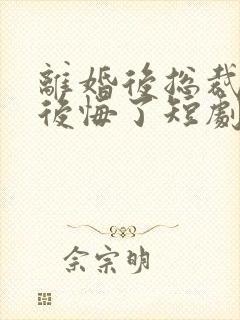 離婚後總裁
後悔了短劇
佘宗明